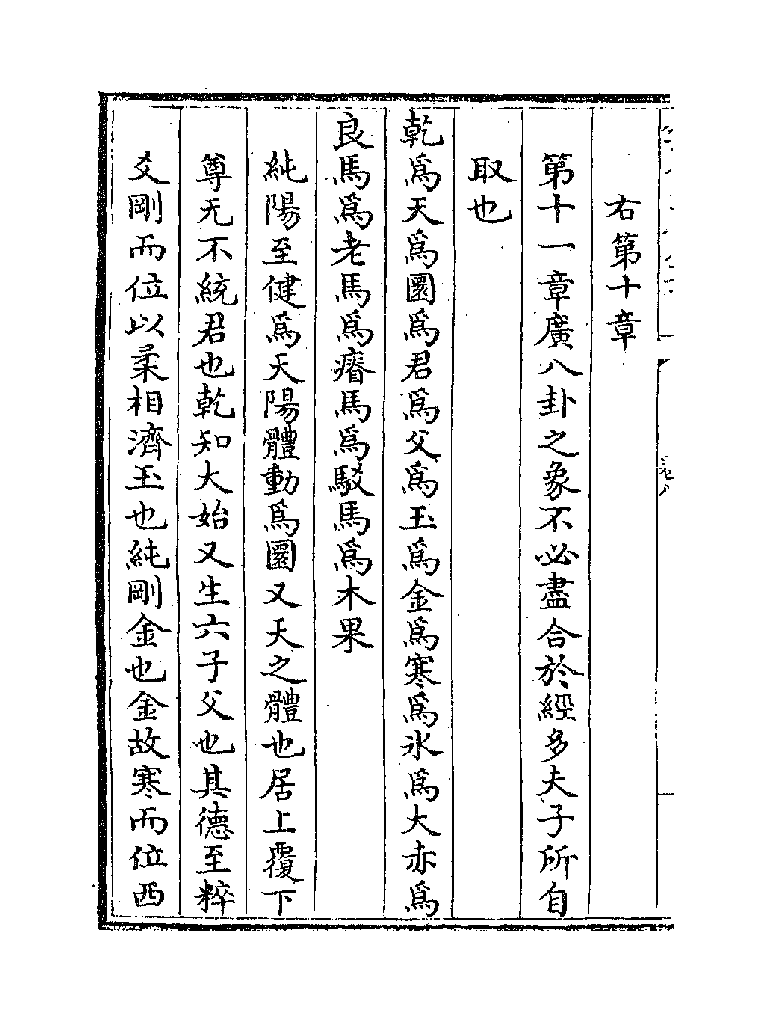 右第十章
第十一章廣八卦之象不必盡合於經多夫子所自
取也
乾爲天爲圜爲君爲父爲玉爲金爲寒爲氷爲大赤爲
良馬爲老馬爲瘠馬爲駁馬爲木果
純陽至健爲天陽體動爲圜又天之體也居上覆下
尊无不統君也乾知大始又生六子父也其德至粹
爻剛而位以柔相濟玉也純剛金也金故寒而位西